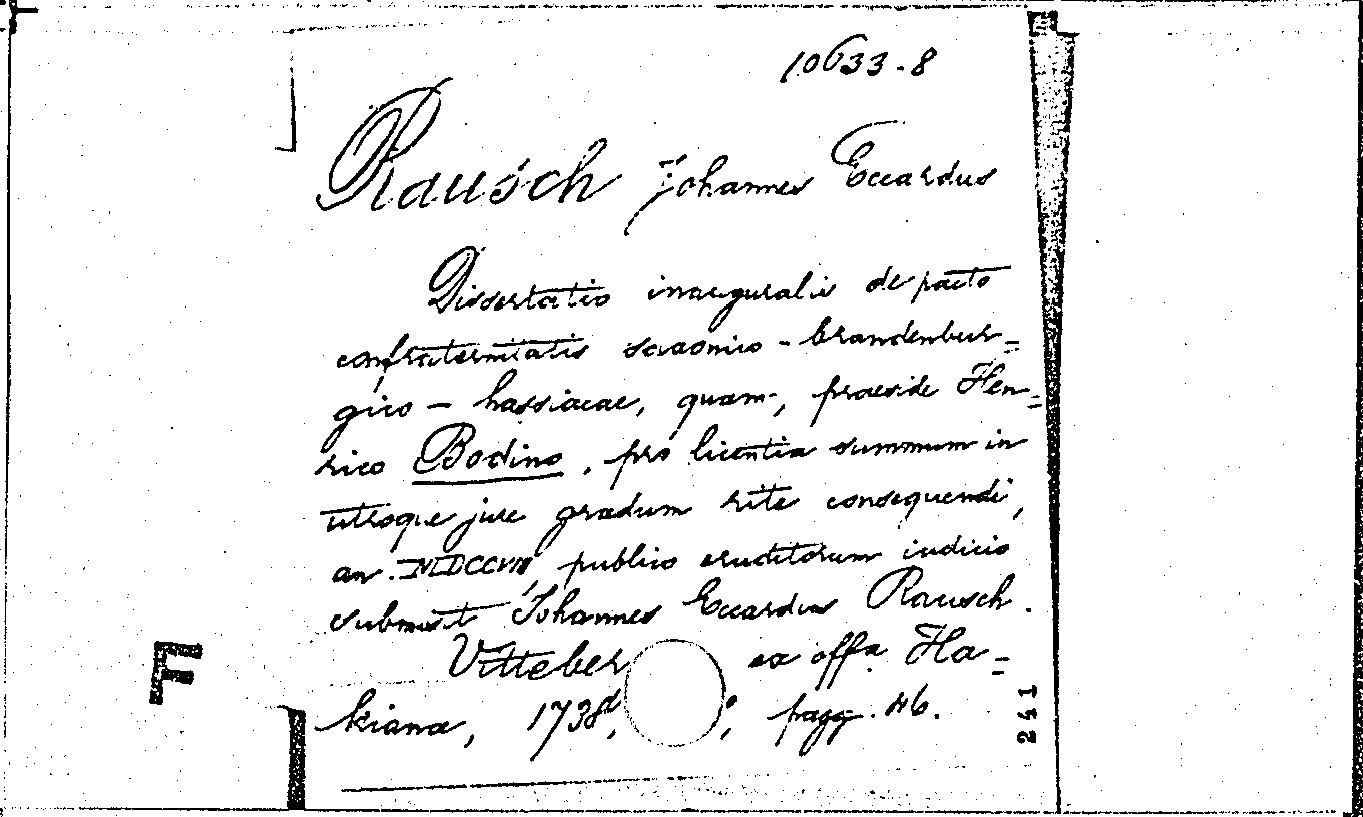 10633-8
Rausch Johannes Eccardus
Dissertatio inauguralis de pacto
confraternitatis saxonico - brandenbur=
gico - hassiacae, quam, praeside Hen=
rico Bodino, pro licentia summum in
utroque jure gradum rite consequendi,
an. MDCCVII, publico eruditorum iudicio
submisit Johannes Eccardus Rausch.
Vitteber ex offa Ha=
kiana, 1738, ; pagg. 46.
F
241